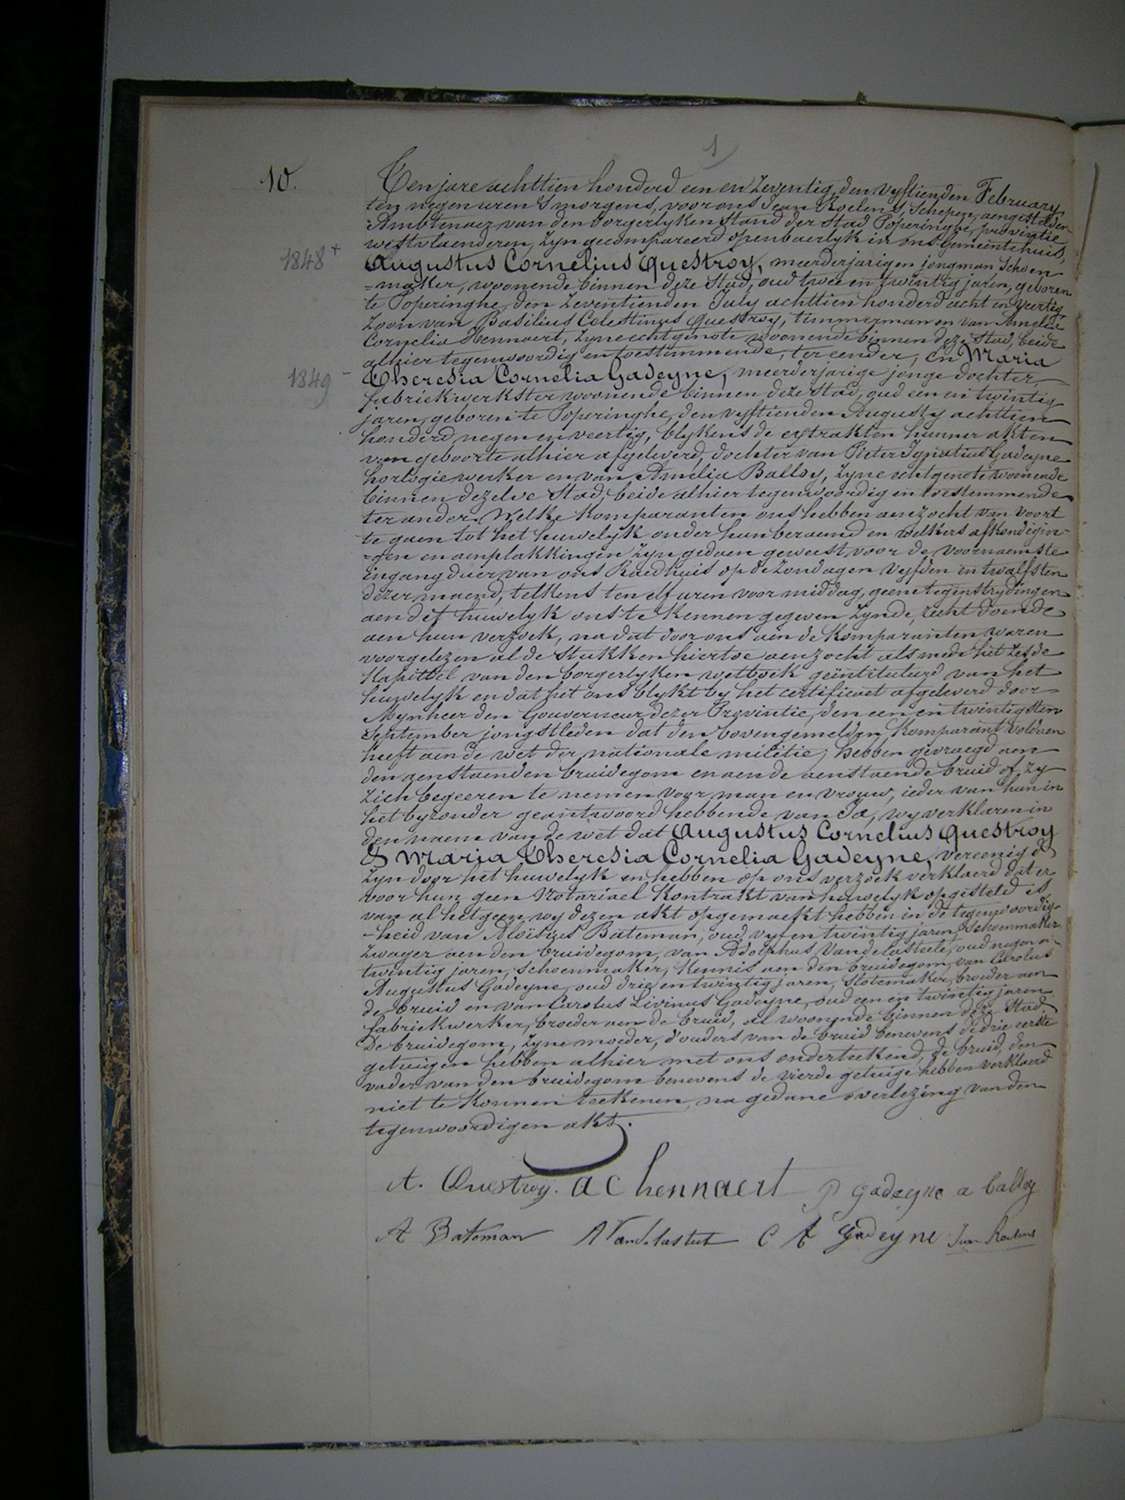 1
10.
Ten jare achttien honderd een en zeventig, den vyftienden February
ten negen uren 's morgens, voor ons Jean Roelens, Schepen, aengestelden
Ambtenaer van den borgerlyken Stand der Stad Poperinghe, provintie
westvlaenderen, zyn gecompareerd openbaerlyk in ons Gemeentehuis,
1848 + Augustus Cornelius Questroy, meerderjarigen jongman Schoen
=maker, woonende binnen deze Stad, oud twee en twintig jaren, geboren
te Poperinghe, den zeventienden July achttien honderd acht en veertig,
zoon van Basilius Celestinus Questroy, timmerman en van Amelia
Cornelia Hennaert, zyne echtgenote woonende binnen deze Stad, beide
alhier tegenwoordig en toestemmende, ter eender, en Maria
1849 - Theresia Cornelia Gadeyne, meerderjarige jonge dochter,
fabriekwerkster woonende binnen deze Stad, oud een en twintig
jaren, geboren te Poperinghe, den vyftienden Augusty achttien
honderd negen en veertig, blykens de extrakten hunner akten
van geboorte alhier afgeleverd, dochter van Pieter Ignatius Gadeyne
horlogiewerker en van Amelia Balloy, zyne echtgenote woonende
binnen dezelve Stad, beide alhier tegenwoordig en toestemmende
ter ander. Welke komparanten ons hebben aenzocht van voort
te gaen tot het huwelyk onder hun beraemd en welkers afkondigin-
-gen en aenplakkingen zyn gedaen geweest voor de voornaemste
ingangdeur van ons Raedhuis op de Zondagen vyfden en twalfsten
dezer maend, telkens ten elf uren voor middag, geene tegenstrydingen
aen dit huwelyk ons te kennen gegeven zynde, recht doende
aen hun verzoek, na dat door ons aen de komparanten waren
voorgelezen al de stukken hiertoe aenzocht alsmede het zesde
Kapittel van den borgerlyken wetboek geintituleerd van het
huwelyk en dat het ons blykt by het certificaet afgeleverd door
Mynheer den Gouverneur dezer Provintie, den een en twintigsten
September jongstleden dat den bovengemelden Komparant voldaen
heeft aen de wet der nationale militie; hebben gevraegd aen
den aenstaenden bruidegom en aen de aenstaende bruid of zy
zich begeeren te nemen voor man en vrouw, ieder van hun in
het byzonder geantwoord hebbende van Ja, wy verklaren in
den naem van de wet dat Augustus Cornelius Questroy
& Maria Theresia Cornelia Gadeyne, vereenigd
zyn door het huwelyk en hebben op ons verzoek verklaerd dat er
voor hun geen Notariael kontrakt van huwelyk opgesteld is
van al hetgeen wy dezen akt opgemaekt hebben in de tegenwoordig-
-heid van Aloïsius Bateman, oud vyf en twintig jaren, Schoenmaker
Zwager aen den bruidegom, van Adolphus Vandelasteele, oud negen en
twintig jaren, Schoenmaker, kennis aen den bruidegom, van Carolus
Augustus Gadeyne, oud drie en twintig jaren, Slotemaker, broeder aen
de bruid en van Carolus Livinus Gadeyne, oud een en twintig jaren
fabriekwerker, broeder aen de bruid, al woonende binnen deze Stad
De bruidegom, zyne moeder, d'ouders van de bruid benevens de drie eerste
getuigen hebben alhier met ons onderteekend, de bruid, den
vader van den bruidegom benevens de vierde getuige hebben verklaerd
niet te konnen teekenen, na gedane overlezing van den
tegenwoordigen akt.
A. Questroy. a c hennaert P gadeyne a balloy
A Bateman A Vandelasteele C A gadeyne Jean Roelens